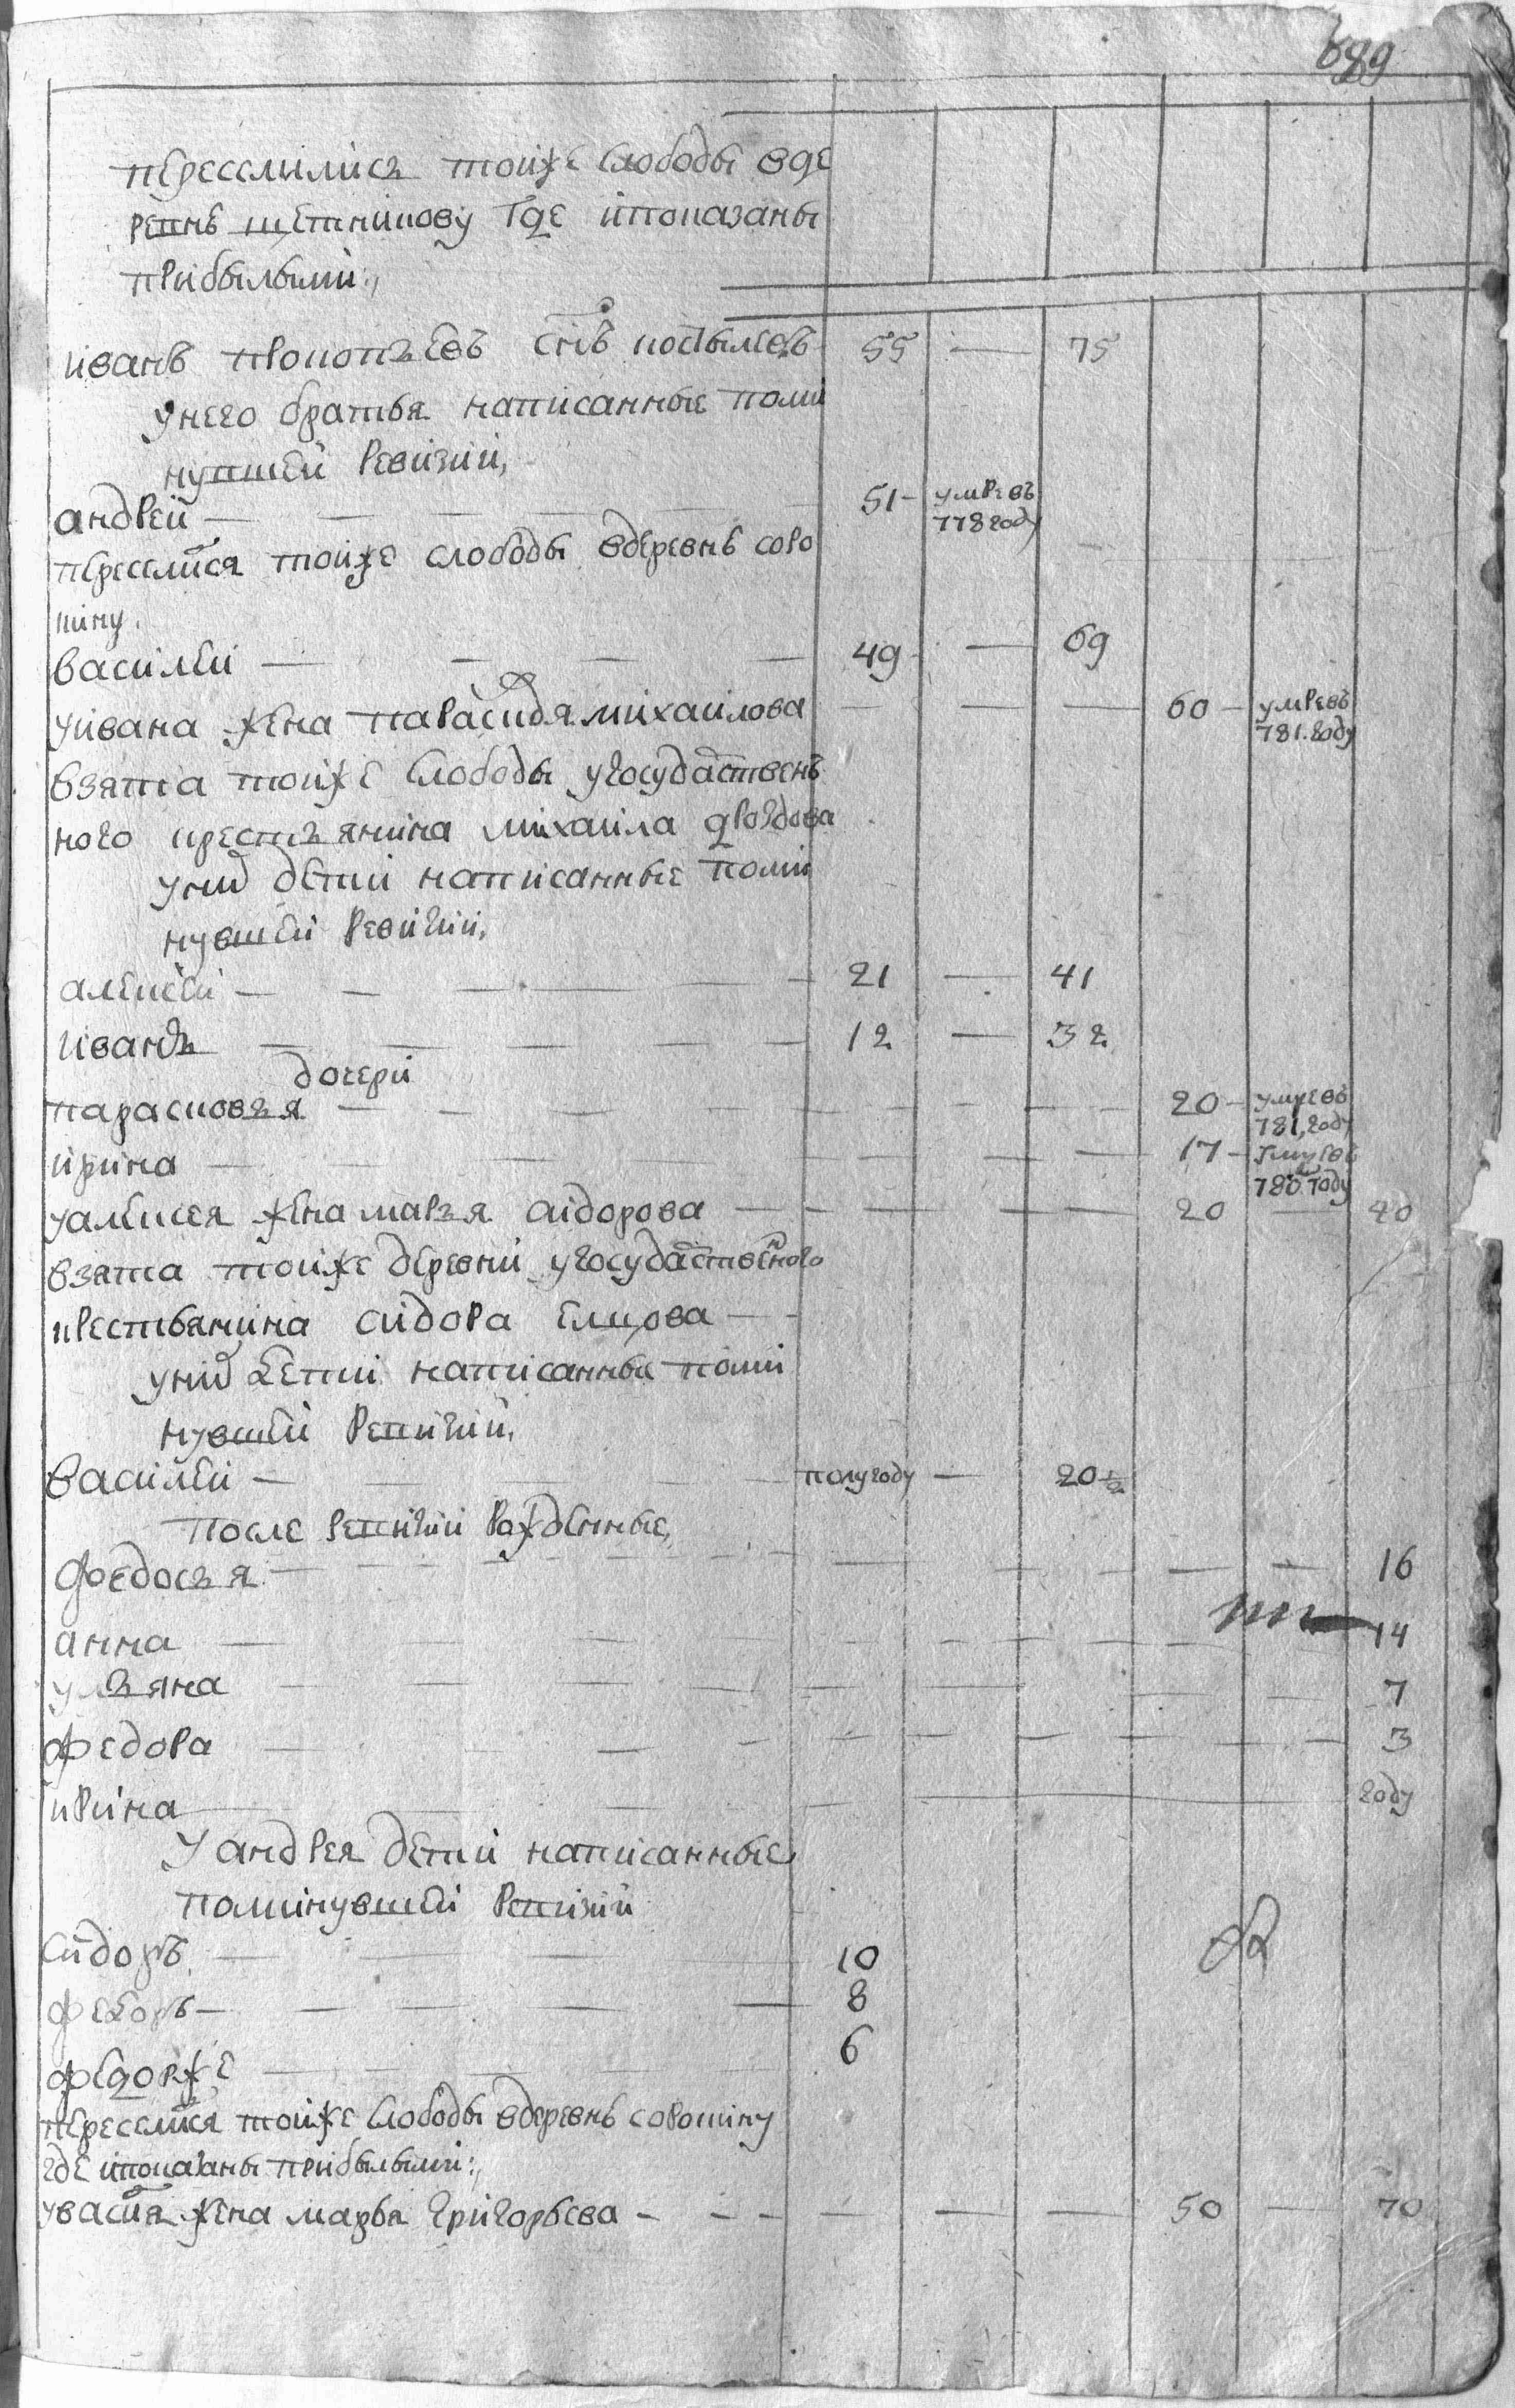 689
переселились тойже слободы вде
ревнѣ щетникову где ипоказаны
прибылыми
иванъ прокопьевъ снъ костылевъ 55 — 75
унего братья написанные поми
нувшей ревизии
андрей — 51 — умревъ
778 году
переселился тойже слободы вдеревнѣ соро
кину
василей — 49 — 69
уивана жена парасковья михаилова — 60 — умревъ
781 году
взята тойже слободы угосударственъ
ного крестьянина михаила дроздова
уних дети написанные поми
нувшей ревизии
алексей — 21 — 41
иванъ — 12 — 32
дочери
парасковья — 20 — умревъ
781 году
ирина — 17 — умревъ
780 году
уалексея жена марья сидорова — 20 — 40
взята тойже деревни угосударственного
крестьянина сидора елцова —
уних дети написанные поми
нувшей ревизии
василей — полугоду — 20 1/2
после ревизии рожденные
федосья — 16
анна — 14
ульяна — 7
федора — 3
ирина — году
у андрея дети написанные
поминувшей ревизии
сидоръ — 10
федоръ — 8
федорже — 6
переселился тойже слободы вдеревнѣ
где ипоказаны прибылыми
увасилья жена марья григорьева — 50 — 70